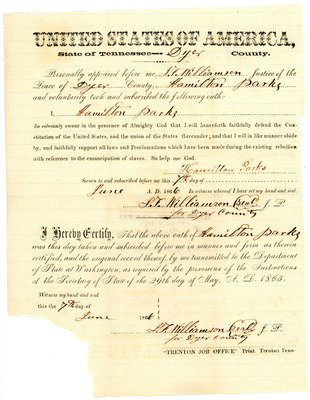 UNITED STATES OF AMERICA,
State of Tennessee— Dyer County.
Personally appeared before me, J. F. Williamson Justice of the
Peace of Dyer County, Hamilton Parks
and voluntarily took and subscribed the following oath:
I, Hamilton Parks
do solemnly swear in the presence of Almighty God that I will henceforth faithfully defend the Con-
stitution of United States, and the union of the States thereunder; and that I will in like manner abide
by, and faithfully support all laws and Proclamations which have been made during the existing rebellion
with reference to the emancipation of slaves. So help me God.
Hamilton Parks
Sworn to and subscribed before me this 7th day of
June A. D. 1866 In witness whereof I have set my hand and seal.
J. F. Williamson Seal J. P.
for Dyer County
I Hereby Certify, That the above oath of Hamilton Parks
was this day taken and subscribed before me in manner and form as therein
certified, and the original record thereof, by me transmitted to the Department
of State at Washington, as required by the provisions of the Instructions
of the Secretary of State of the 29th day of May, A. D. 1865.
Witness my hand and seal
this the 7th day of
June 1866
J. F. Williamson Seal J. P.
for Dyer County
"TRENTON JOB OFFICE" Print. Trenton Tenn